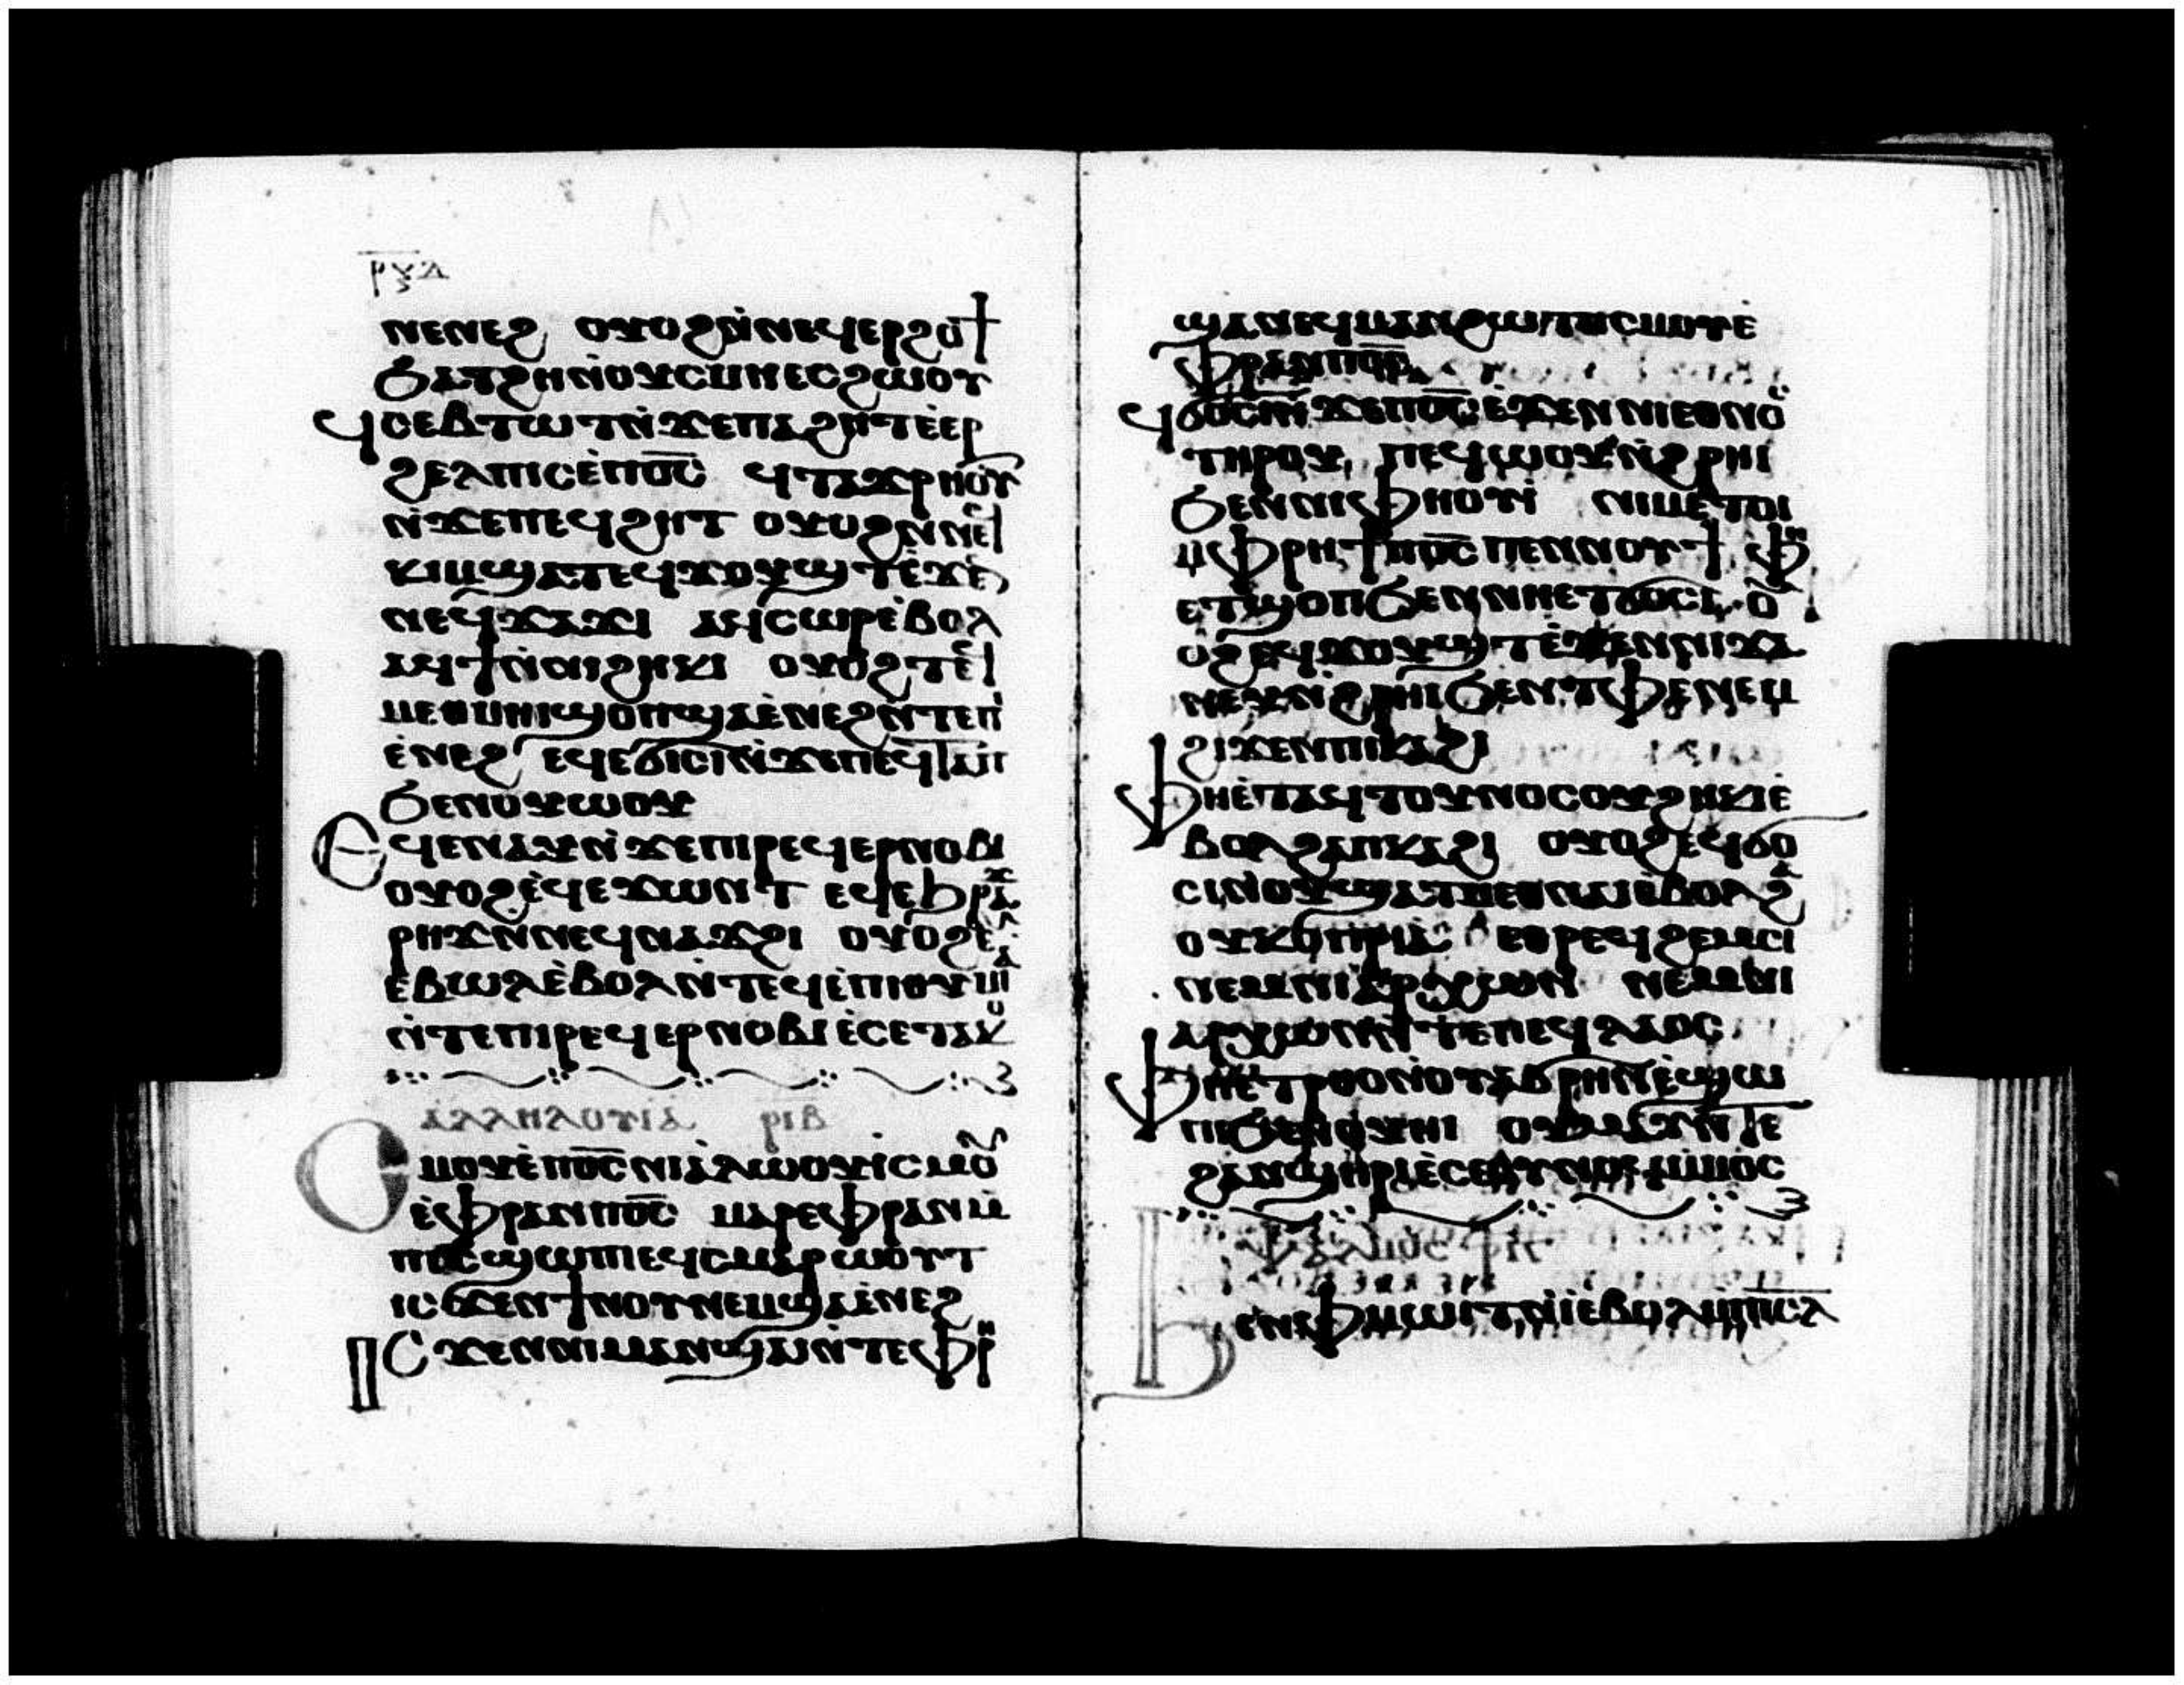 ⲣⲝⲇ
ⲛⲉⲛⲉϩ ⲟⲩⲟϩⲛ̀ⲛⲉϥⲉⲣϩⲟϯ
ϧⲁⲧϩⲏⲛ̀ⲟⲩⲥⲙⲏⲉⲥϩⲱⲟⲩ
ϥⲥⲉⲃⲧⲱⲧⲛ̀ϫⲉⲡⲁϩⲏⲧⲉ̀ⲉⲣ
ϩⲉⲗⲡⲓⲥⲉ̀ⲡⲟ̅ⲥ̅ ϥⲧⲁϫⲣⲏⲟⲩⲧ
ⲛ̀ϫⲉⲡⲉϥϩⲏⲧ ⲟⲩⲟϩⲛ̀ⲛⲉϥ
ⲕⲓⲙϣⲁⲧⲉϥϫⲟⲩϣⲧⲉ̀ϫⲉⲛ
ⲛⲉϥϫⲁϫⲓ ⲁϥⲥⲱⲣⲉ̀ⲃⲟⲗ
ⲁϥϯⲛ̀ⲛⲓϩⲏⲕⲓ ⲟⲩⲟϩⲧⲉϥ
ⲙⲉⲑⲙⲏⲓϣⲟⲡϣⲁⲉ̀ⲛⲉϩⲛ̀ⲧⲉⲡⲓ
ⲉ̀ⲛⲉϩ ⲉϥⲉϭⲓⲥⲓⲛ̀ϫⲉⲡⲉϥⲧⲁⲡ
ϧⲉⲛⲟⲩⲱⲟⲩ
ⲉϥⲉⲛⲁⲩⲛ̀ϫⲉⲡⲓⲣⲉϥⲉⲣⲛⲟⲃⲓ
ⲟⲩⲟϩⲉ̀ϥⲉϫⲱⲛⲧ ⲉϥⲉϧⲣⲁϫ
ⲣⲏϫⲛ̀ⲛⲉϥⲛⲁϫϩⲓ ⲟⲩⲟϩⲉϥ
ⲉⲃⲱⲗⲉ̀ⲃⲟⲗⲛ̀ⲧⲉϥⲉ̀ⲡⲓⲑⲩⲙⲓⲁ
ⲛ̀ⲧⲉⲡⲓⲣⲉϥⲉⲣⲛⲟⲃⲓⲉ̀ⲥⲉⲧⲁⲕⲟ
ⲁⲗⲗⲏⲗⲟⲩⲓⲁ ⲣⲓⲃ
ⲥⲙⲟⲩⲉ̀ⲡⲟ̅ⲥ̅ⲛⲓⲁ̀ⲗⲱⲟⲩⲓ̀ⲥⲙⲟⲩ
ⲉ̀ⲫⲣⲁⲛⲡⲟ̅ⲥ̅ ⲙⲁⲣⲉⲫⲣⲁⲛⲙ̀
ⲡⲟ̅ⲥ̅ϣⲱⲡⲓⲉϥⲥⲙⲁⲣⲱⲟⲩⲧ
ⲓⲥϫⲉⲛϯⲛⲟⲩⲛⲉⲙϣⲁⲉ̀ⲛⲉϩ
ⲓⲥϫⲉⲛⲛⲓⲙⲁⲛϣⲁⲓⲛ̀ⲧⲉⲫⲣⲏ
ϣⲁⲛⲉϥⲙⲁⲛϩⲱⲧⲡⲥⲙⲟⲩⲉ̀
ⲫⲣⲁⲛⲡⲟ̅ⲥ̅
ϥϭⲟⲥⲓⲛ̀ϫⲉⲡⲟ̅ⲥ̅ⲉ̀ϫⲉⲛⲛⲓⲉⲑⲛⲟⲥ
ⲧⲏⲣⲟⲩ ⲡⲉϥⲱⲟⲩⲛ̀ϩⲣⲏⲓ
ϧⲉⲛⲛⲓⲫⲏⲟⲩⲓ̀ ⲛⲓⲙⲉⲧⲟⲓ
ⲙ̀ⲫⲣⲏϯⲡⲟ̅ⲥ̅ⲡⲉⲛⲛⲟⲩϯ ⲫⲏ
ⲉⲧϣⲟⲡϧⲉⲛⲛⲏⲉⲧϭⲟⲥⲓ ⲟⲩ
ⲟϩⲉϥϫⲟⲩϣⲧⲉ̀ϫⲉⲛⲛⲓϫⲁ
ⲛⲉⲩⲛ̀ϩⲣⲏⲓϧⲉⲛⲧⲫⲉⲛⲉⲙ
ϩⲓϫⲉⲛⲡⲓⲕⲁϩⲓ
ⲫⲏⲉ̀ⲧⲁϥⲧⲟⲩⲛⲟⲥⲟⲩϩⲏⲕⲓⲉ̀
ⲃⲟⲗϩⲁⲡⲕⲁϩⲓ ⲟⲩⲟϩⲉϥϭⲟ
ⲥⲓⲛ̀ⲟⲩϣⲁⲧⲙⲉⲑⲛⲁⲓⲉ̀ⲃⲟⲗϩⲁ
ⲟⲩⲕⲟⲡⲣⲓⲁ ⲉⲑⲣⲉϥϩⲉⲙⲥⲓ
ⲛⲉⲙⲛⲓⲁⲣⲭⲱⲛ ⲛⲉⲙⲛⲓ
ⲁⲣⲭⲱⲛⲛ̀ⲧⲉⲡⲉϥⲗⲁⲟⲥ
ⲫⲏⲉⲧⲑⲣⲟⲛ̀ⲟⲩⲁⲃⲣⲏⲛⲉ̀ϣⲱ
ⲡⲓϧⲉⲛⲟⲩⲏⲓ ⲟⲩⲙⲁⲩⲛ̀ⲧⲉ
ϩⲁⲛϣⲏⲣⲓⲉ̀ⲥⲉⲟⲩⲛⲟϥⲙ̀ⲙⲟⲥ
ⲯⲁⲗⲙⲟⲥ ⲣⲓⲅ
ϧⲉⲛⲫⲙⲱⲓⲧⲛ̀ⲓ̀ⲉ̀ⲃⲟⲗⲙ̀ⲡⲓ̅ⲥ̅ⲗ̅